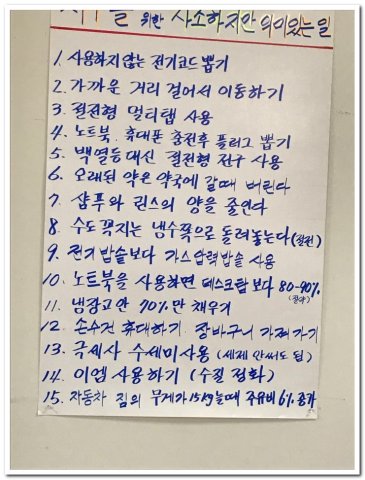 지구를 위한 사소하지만 의미있는 일
1. 사용하지 않는 전기코드 뽑기
2. 가까운 거리 걸어서 이동하기
3. 절전형 멀티탭 사용
4. 노트북. 휴대폰 충전후 플러그 뽑기
5. 백열등대신 절전형 전구 사용
6. 오래된 약은 약국에 갈때 버린다
7. 샴푸와 린스의 양을 줄인다
8. 수도꼭지는 냉수쪽으로 돌려놓는다(절전)
9. 전기밥솥보다 가스압력밥솥 사용
10. 노트북을 사용하면 데스크탑보다 80-90%
(절약)
11. 냉장고안 70%만 채우기
12. 손수건 휴대하기 장바구니 가져가기
13. 극세사 수세미사용 (세제 안써도 됨)
14. 이엠 사용하기 (수질 정화)
15. 자동차 짐의 무게가 15kg늘때 주유비 6% 증가